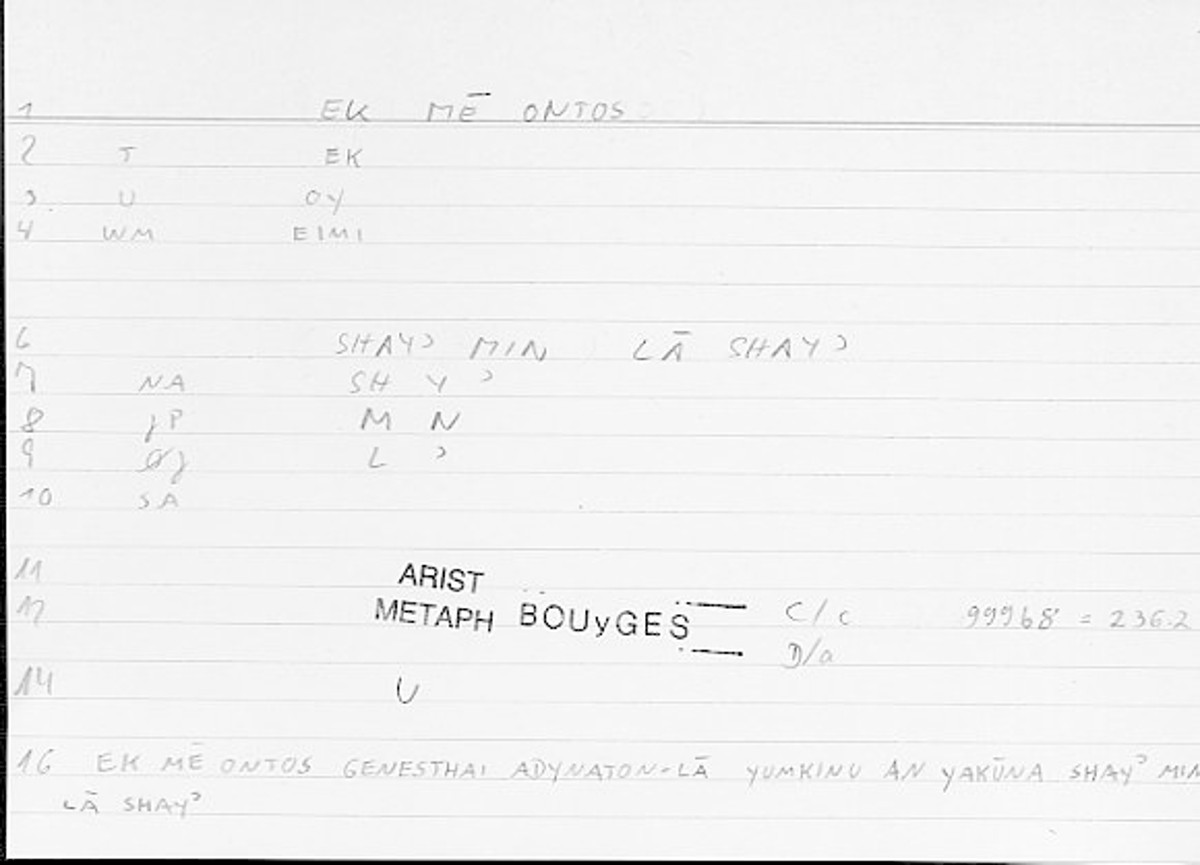 1 EK MĒ ONTOS
2 T EK
3 U OY
4 WM EIMI
6 SHAYʾ MIN LĀ SHAYʾ
7 NA SH Y ʾ
8 jP M N
9 L ʾ
10 SA
11 ARIST
12 METAPH BOUyGES C/c 99968 = 236.2
D/a
14 U
16 EK MĒ ONTOS GENESTHAI ADYNATON-LĀ YUMKINU AN YAKŪNA SHAYʾ MIN
LĀ SHAYʾ